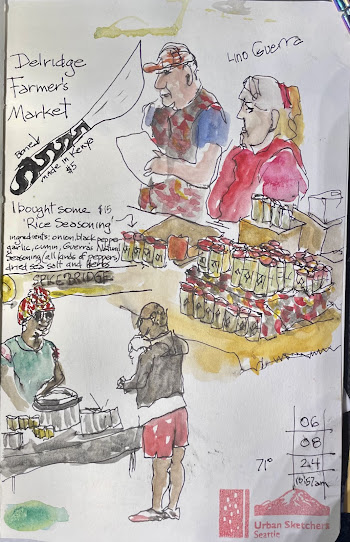 Delridge
Farmer's
Market
Lino Guerra
Bone
made in Kenya
$5
I bought some $15
'Rice Seasoning'
ingredients: onion, black pepper
garlic, cumin, Guerra's Natural
Seasoning (all kinds of peppers)
dried sea salt and Herbs
06
08
71° 24
10:57am
Urban Sketchers
Seattle